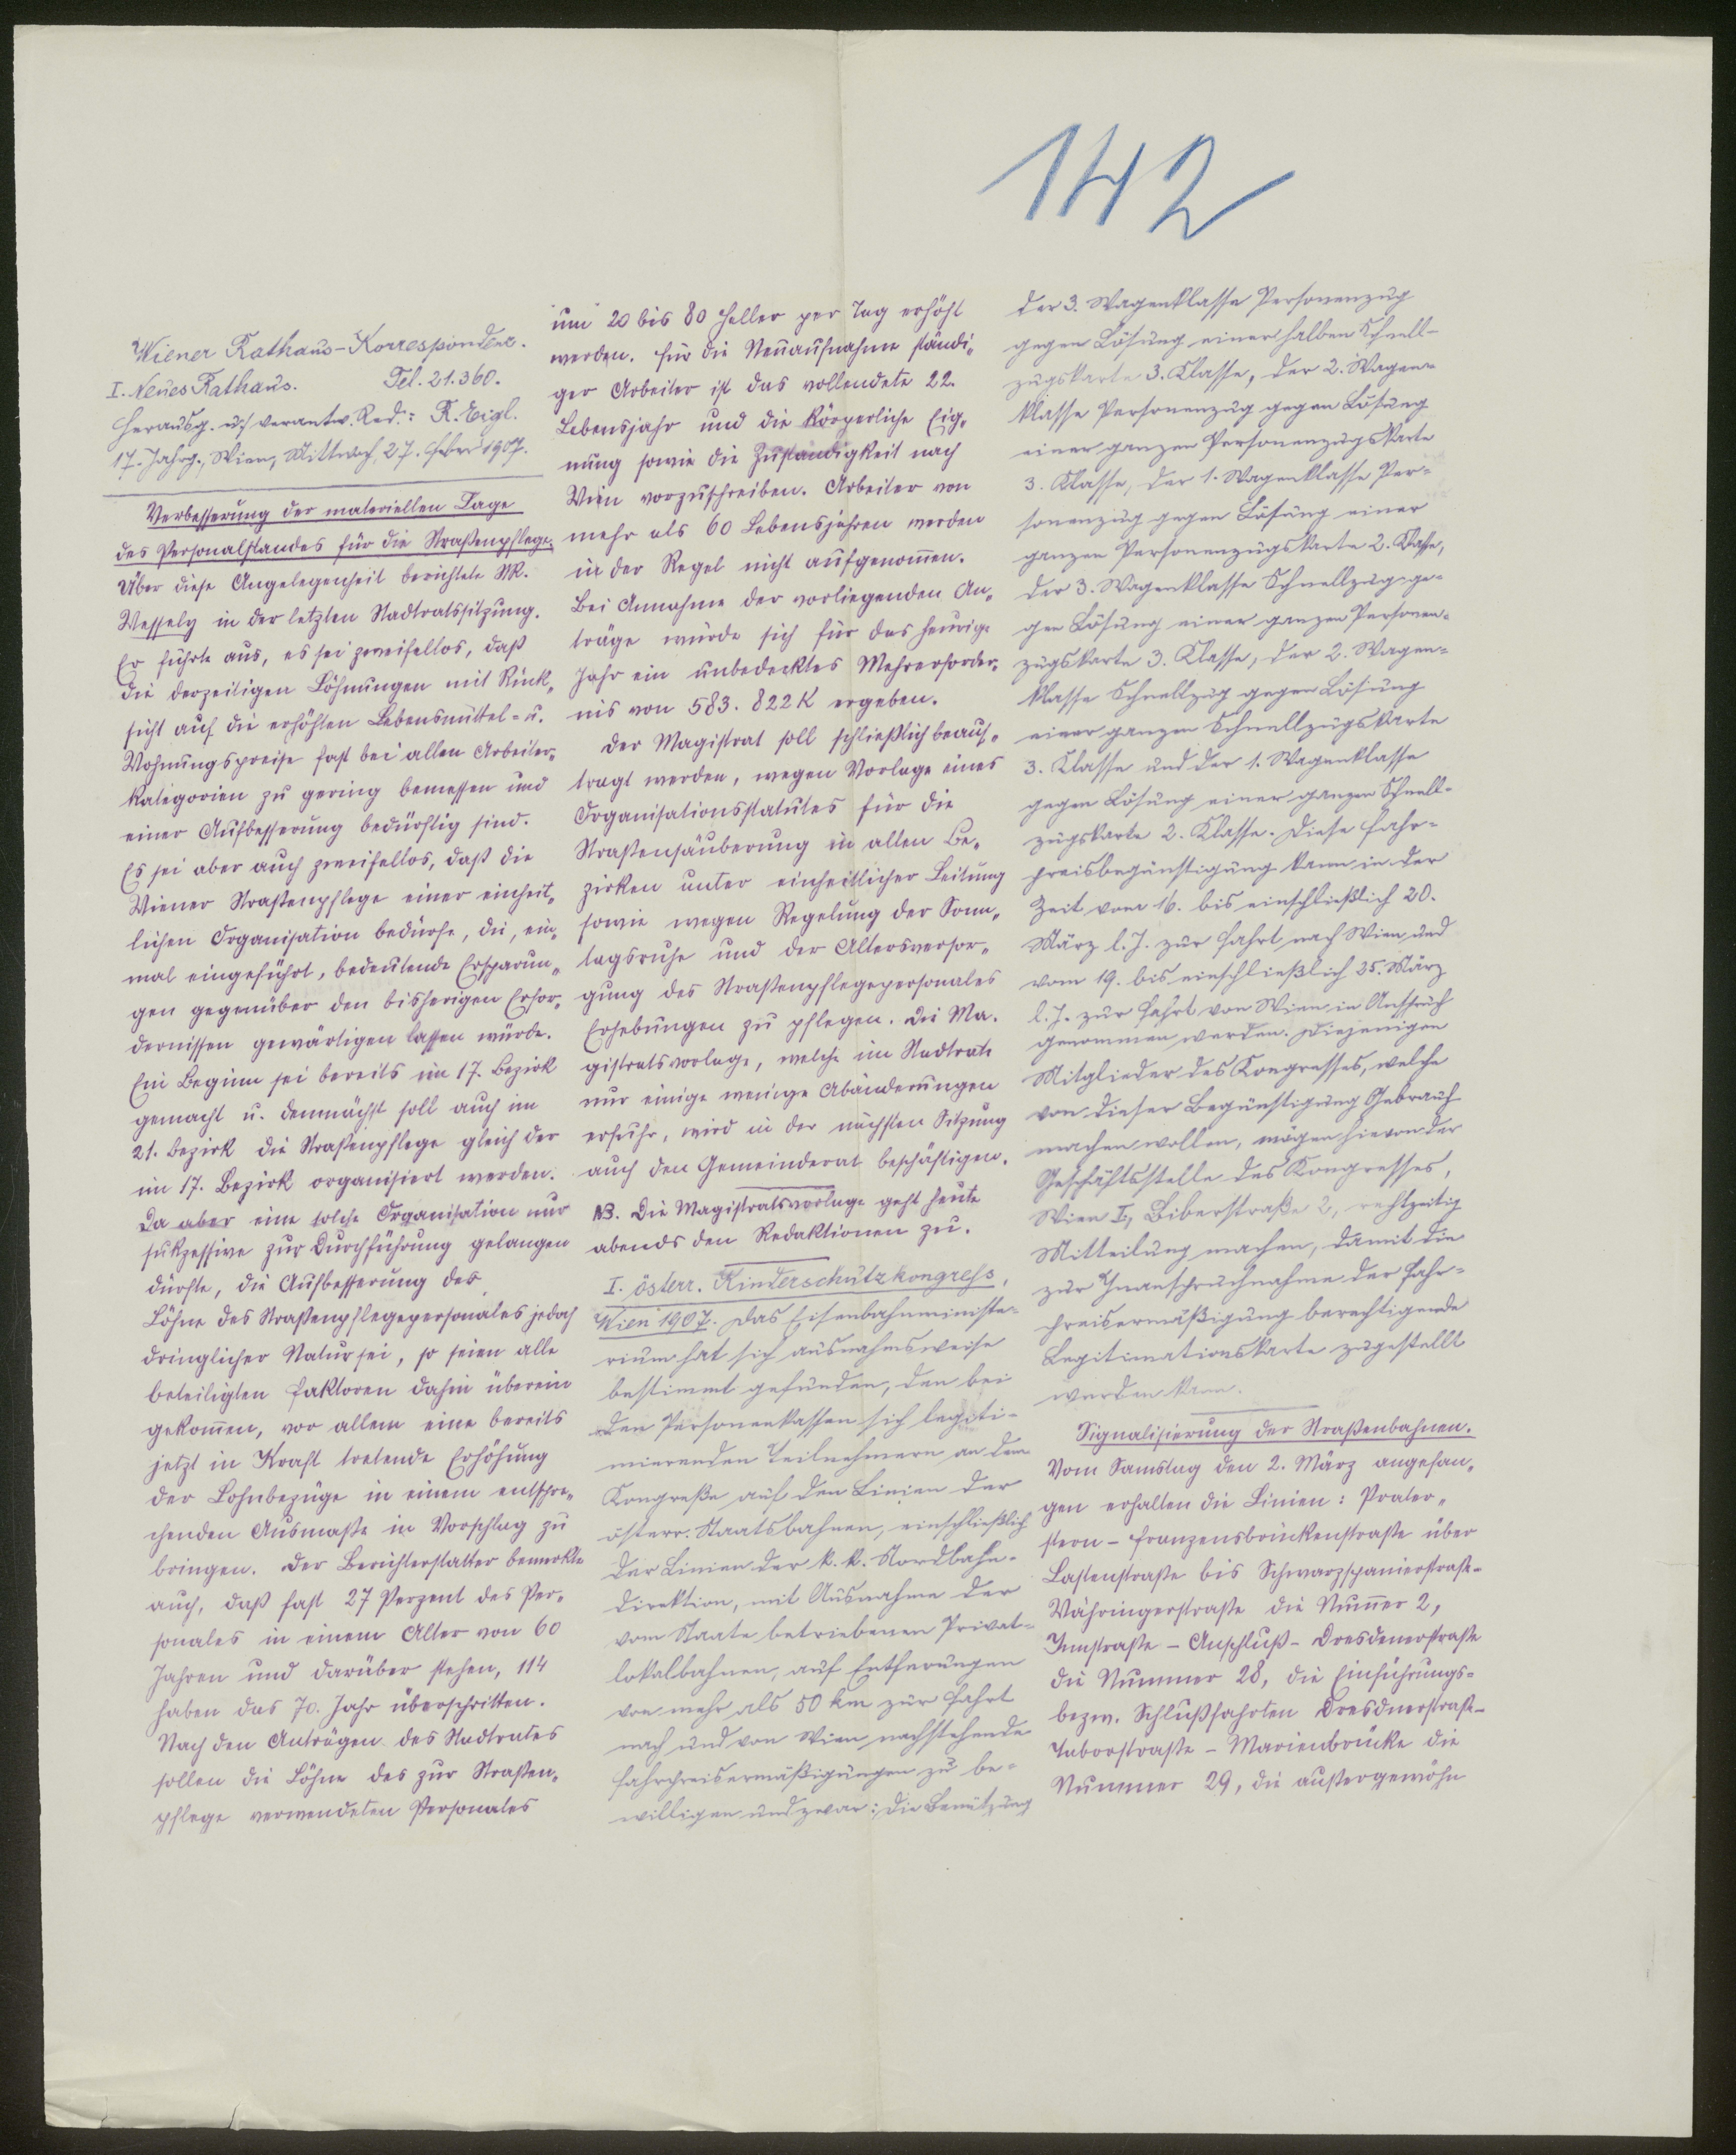 142
Wiener Rathaus-Korrespondenz.
I. Neues Rathaus. Tel. 21.360.
Herausg. u. verantw. Red.: R. Eigl.
17. Jahrg., Wien, Mittwoch, 27. Feber 1907.
Verbesserung der materiellen Lage
des Personalstandes für die Straßenpflege.
Über diese Angelegenheit berichtete StR.
Wessely in der letzten Stadtratssitzung.
Er führte aus, es sei zweifellos, daß
die derzeitigen Löhnungen mit Rück„
sicht auf die erhöhten Lebensmittel- u.
Wohnungspreise fast bei allen Arbeiter„
kategorien zu gering bemessen und
einer Aufbesserung bedürftig sind.
Es sei aber auch zweifellos, daß die
Wiener Straßenpflege einer einheit„
lichen Organisation bedürfe, die, ein„
mal eingeführt, bedeutende Ersparun„
gen gegenüber den bisherigen Erfor„
dernissen gewärtigen lassen würde.
Ein Beginn sei bereits im 17. Bezirk
gemacht u. demnächst soll auch im
21. Bezirk die Straßenpflege gleich der
im 17. Bezirk organisiert werden.
Da aber eine solche Organisation nur
sukzessive zur Durchführung gelangen
dürfte, die Aufbesserung der
Löhne des Straßenpflegepersonales jedoch
dringlicher Natur sei, so seien alle
beteiligten Faktoren dahin überein
gekommen, vor allem eine bereits
jetzt in Kraft tretende Erhöhung
der Lohnbezüge in einem entspre„
chenden Ausmaße in Vorschlag zu
bringen. Der Berichterstatter bemerkte
auch, daß fast 27 Perzent des Per„
sonales in einem Alter von 60
Jahren und darüber stehen, 114
haben das 70. Jahr überschritten.
Nach den Anträgen des Stadtrates
sollen die Löhne des zur Straßen„
pflege verwendeten Personales
um 20 bis 80 Heller per Tag erhöht
werden. Für die Neuaufnahme ständi„
ger Arbeiter ist das vollendete 22.
Lebensjahr und die körperliche Eig„
nung sowie die Zuständigkeit nach
Wien vorzuschreiben. Arbeiter von
mehr als 60 Lebensjahren werden
in der Regel nicht aufgenommen.
Bei Annahme der vorliegenden An„
träge würde sich für das heurige
Jahr ein unbedecktes Mehrerforder„
nis von 583.822 K ergeben.
Der Magistrat soll schließlich beauf„
tragt werden, wegen Vorlage eines
Organisationsstatutes für die
Straßensäuberung in allen Be„
zirken unter einheitlicher Leitung
sowie wegen Regelung der Sonn„
tagsruhe und der Altersversor„
gung des Straßenpflegepersonales
Erhebungen zu pflegen. Die Ma„
gistratsvorlage, welche im Stadtrate
nur einige wenige Abänderungen
erfuhr, wird in der nächsten Sitzung
auch den Gemeinderat beschäftigen.
NB. Die Magistratsvorlage geht heute
abends den Redaktionen zu.
I. österr. Kinderschutzkongress,
Wien 1907. Das Eisenbahnministe-
rium hat sich ausnahmsweise
bestimmt gefunden, den bei
den Personenkassen sich legiti-
mierenden Teilnehmern an dem
Kongreße auf den Linien der
österr. Staatsbahnen, einschließlich
der Linien der k.k. Nordbahn-
direktion, mit Ausnahme der
vom Staate betriebenen Privat-
lokalbahnen, auf Entfernungen
von mehr als 50 km zur Fahrt
nach und von Wien nachstehende
Fahrpreisermäßigungen zu be-
willigen und zwar: Die Benützung
der 3. Wagenklasse Personenzug
gegen Lösung einer halben Schnell-
zugskarte 3. Klasse, der 2. Wagen-
klasse Personenzug gegen Lösung
einer ganzen Personenzugskarte
3. Klasse, der 1. Wagenklasse Per-
sonenzug gegen Lösung einer
ganzen Personenzugskarte 2. Klasse,
der 3. Wagenklasse Schnellzug ge-
gen Lösung einer ganzen Personen-
zugskarte 3. Klasse, der 2. Wagen-
klasse Schnellzug gegen Lösung
einer ganzen Schnellzugskarte
3. Klasse und der 1. Wagenklasse
gegen Lösung einer ganzen Schnell-
zugskarte 2. Klasse. Diese Fahr-
preisbegünstigung kann in der
Zeit vom 16. bis einschließlich 20.
März l. J. zur Fahrt nach Wien und
vom 19. bis einschließlich 25. März
l. J. zur Fahrt von Wien in Anspruch
genommen werden. Diejenigen
Mitglieder des Kongresses, welche
von dieser Begünstigung Gebrauch
machen wollen, mögen hievon der
Geschäftsstelle des Kongresses,
Wien I., Biberstraße 2, rechtzeitig
Mitteilung machen, damit die
zur Inanspruchnahme der Fahr-
preisermäßigung berechtigende
Legitimationskarte zugestellt
werden kann.
Signalisierung der Straßenbahnen.
Vom Samstag den 2. März angefan„
gen erhalten die Linien: Prater„
stern - Franzensbrückenstraße über
Lastenstraße bis Schwarzspanierstraße-
Währingerstraße die Nummer 2,
Innstraße - Anschluß - Dresdenerstraße
die Nummer 28, die Einführungs-
bezw. Schlußfahrten Dresdnerstraße-
Taborstraße - Marienbrücke die
Nummer 29, die außergewöhn